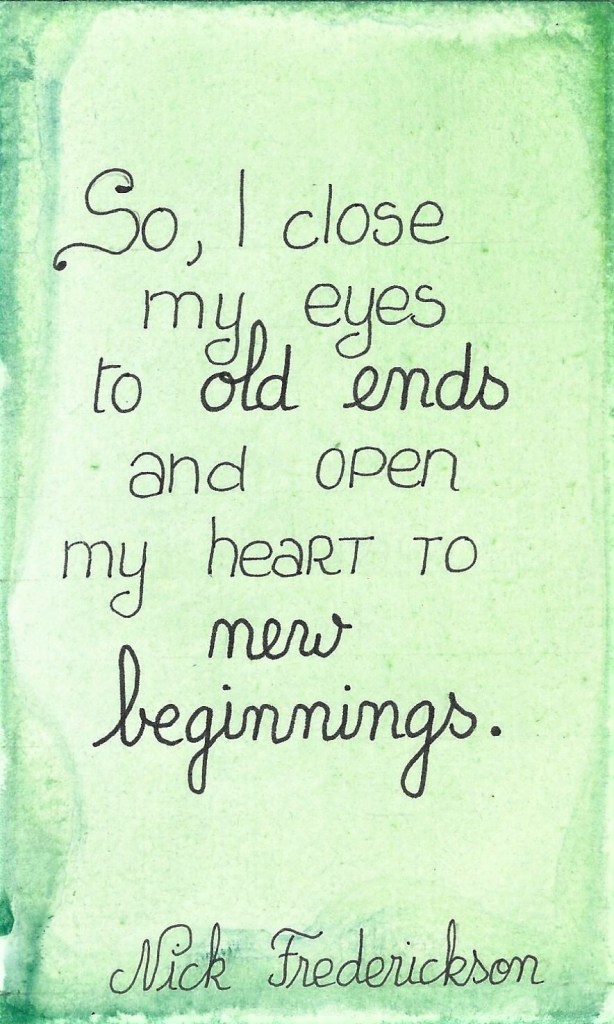 So, I close
my eyes
to old ends
and open
my heart to
new
beginnings.
Nick Frederickson